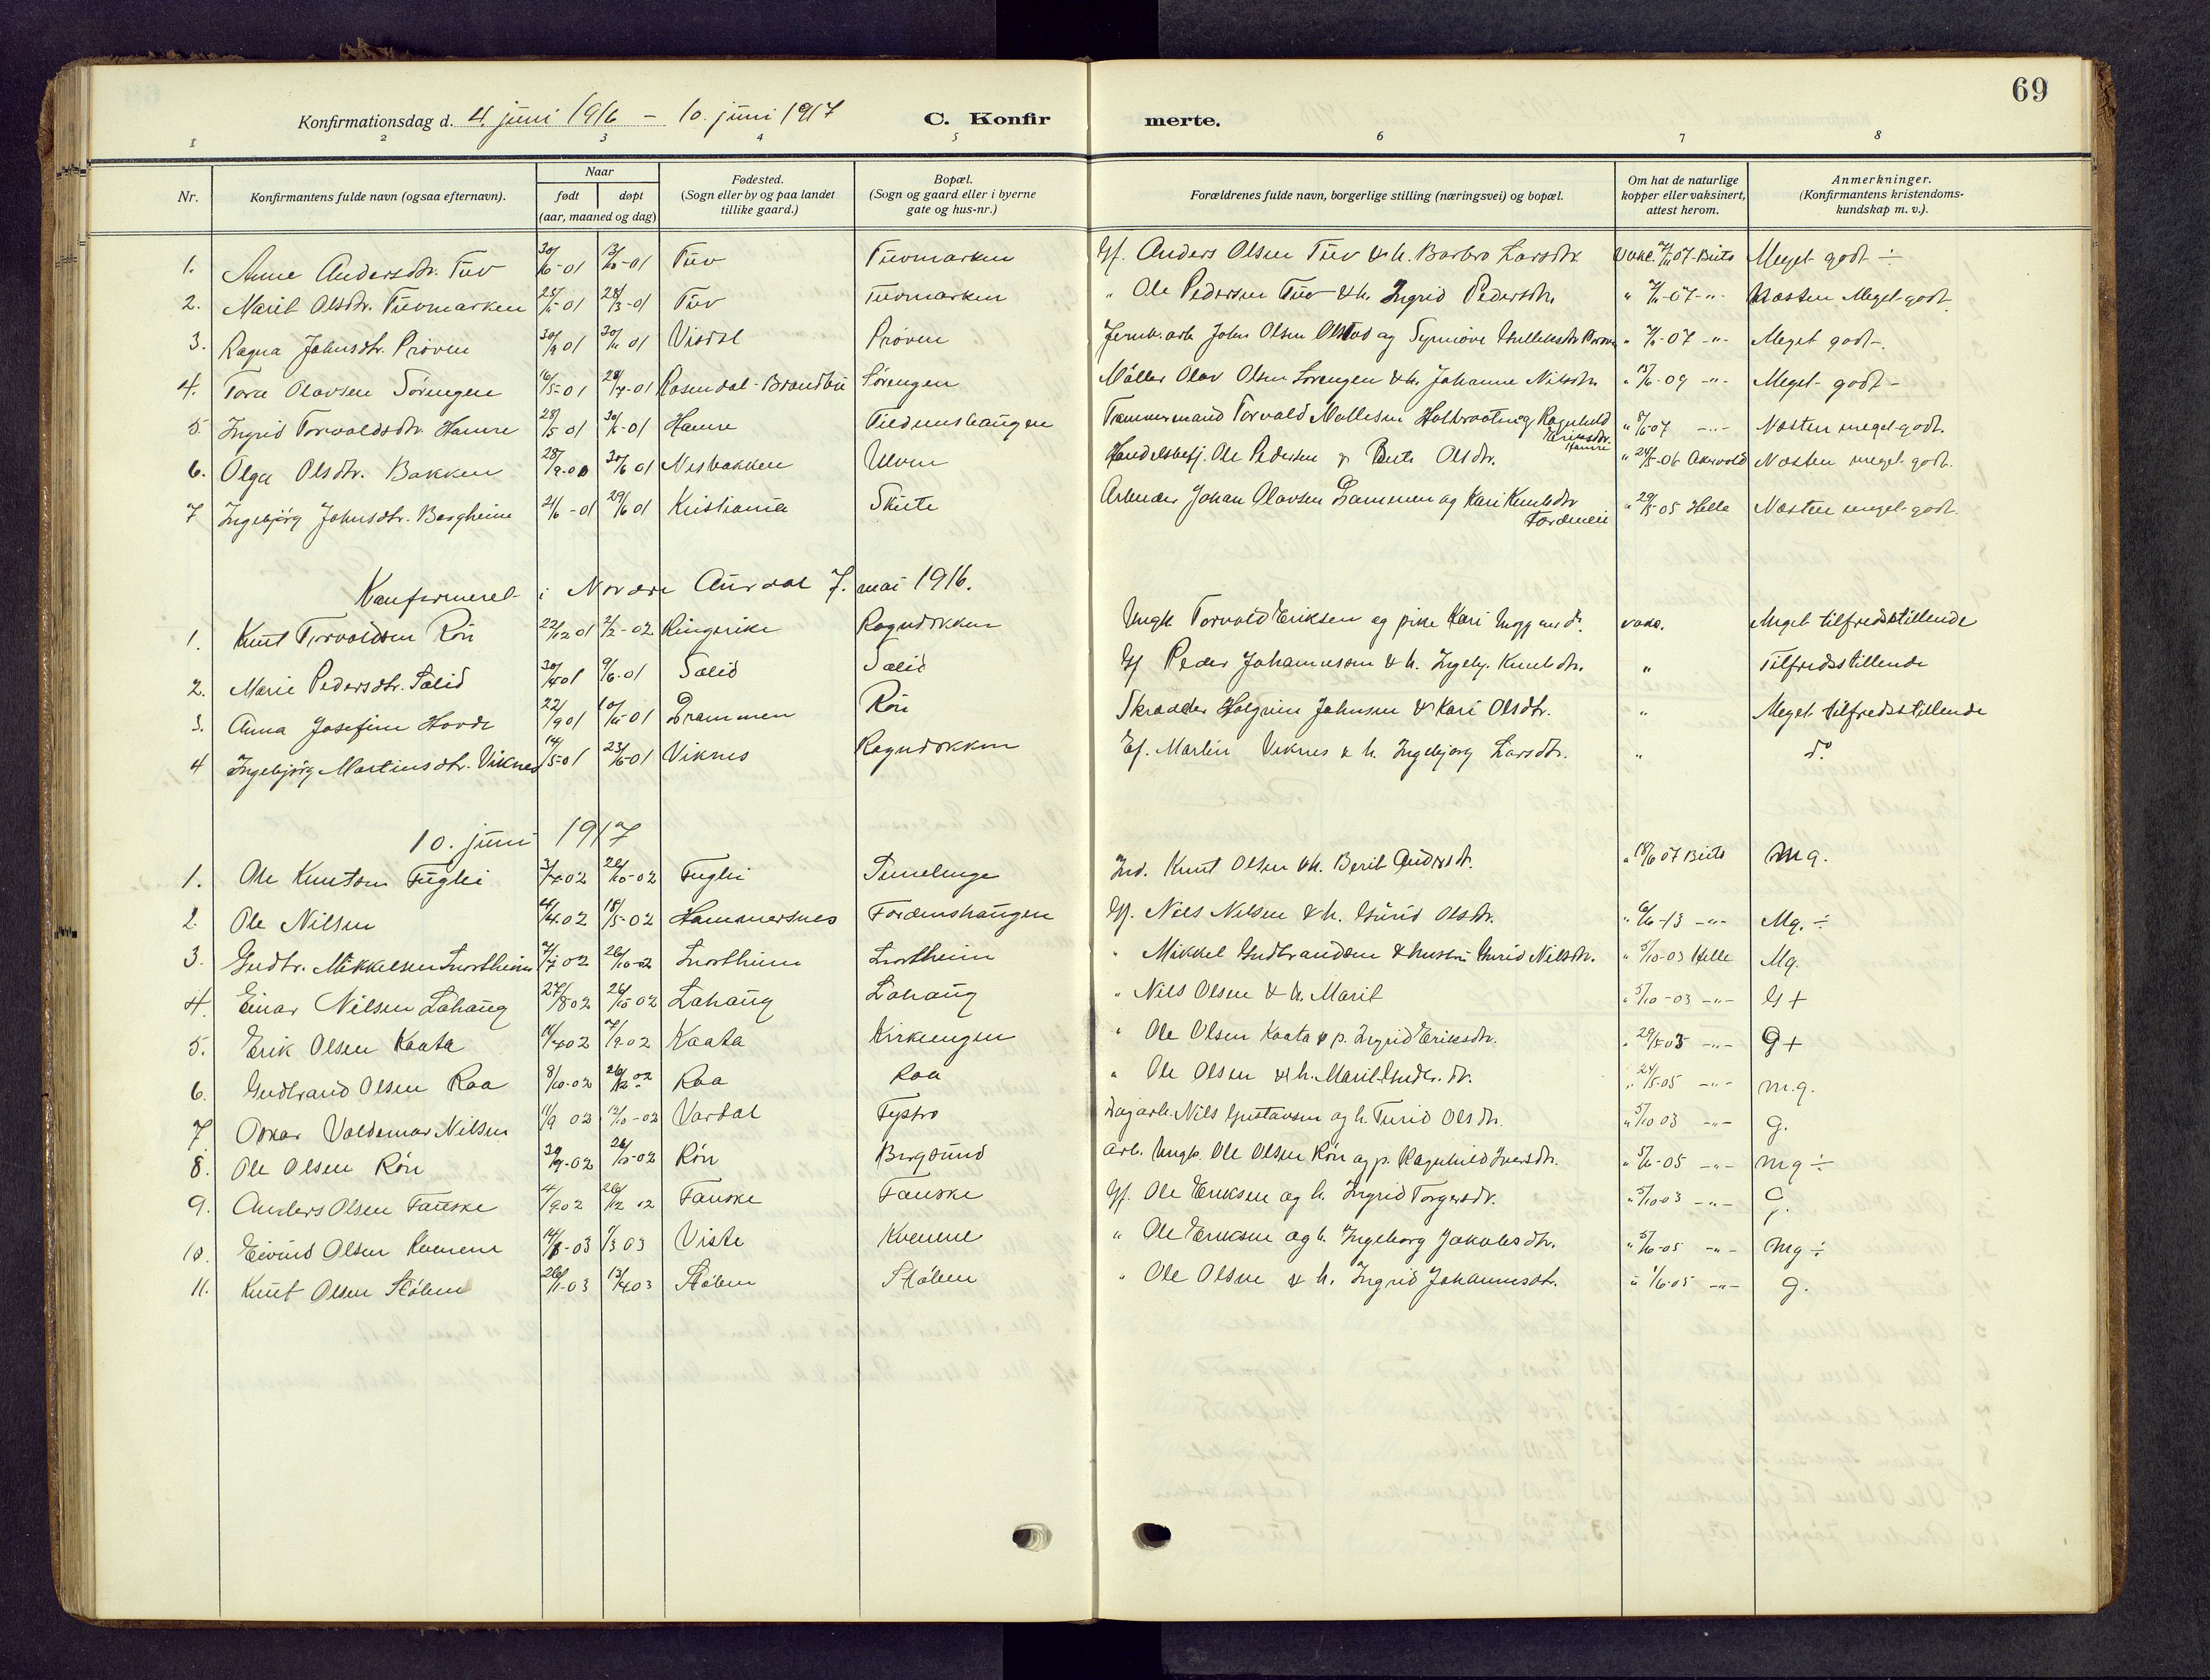 69
Konfirmationsdag d. 4. juni 1916 - 10. juni 1917 C. Konfirmerte.
1 2 3 4 5 6 7 8
Nr. Konfirmantens fulde navn (ogsaa efternavn). Naar født døpt (aar, maaned og dag) Fødested. (Sogn eller by og paa landet tillike gaard.) Bopæl. (Sogn og gaard eller i byerne gate og hus-nr.) Forældrenes fulde navn, borgerlige stilling (næringsvei) og bopæl. Om hat de naturlige kopper eller vaksinert, attest herom. Anmerkninger. (Konfirmantens kristendomskundskap m. v.).
1. Anne Andersdtr. Tuv Tuv Tuvmarken Gf. Anders Olsen Tuv & h. Barbro Larsdtr. Meget godt ÷
2. Marit Olsdtr. Tuvmarken Tuv Tuvmarken " Ole Pedersen Tuv & h. Ingrid Pedersdtr. Næsten Meget godt.
3. Ragna Johnsdtr. Prøven 30/9 01 Visdal Prøven John Olsen og Synnøve Meget godt.
4. Tora Olavsen Sørengen 16/5-01 Rosendal - Brandbu Sørengen Møller Olav Olsen Sørengen & h. Johanne Nilsdtr. Meget godt -
5. Ingrid Torvaldsdtr. Hamre 28/5 01 Hamre Tømmermand Torvald og Ragnhild Eriksdtr. Hamre Næsten meget godt.
6. Olga Olsdtr. Bakken Nesbakken Ulven Handelsbetj. Ole Pedersen & Berte Olsdtr. Næsten meget godt.
7 Ingebjørg Johnsdtr. Bergheim 24/6 -01 29/6 01 Kristiania Skute Arbeider Johan Olavsen Lammen og Kari Knutsdtr " 29/5 05 Helle Næsten meget godt.
Konfirmeret i Nordre Aurdal 7. mai 1916.
1. Knut Torvaldsen Røn 22/12 01 2/2-02 Ringerike Rogndokken Ungk Torvald Eriksen og pike Kari vakc. Meget tilfredsstillende
2. Marie Pedersdtr. Sælid 9/6-01 Sælid Sælid Gf Peder Johannesen & h. Ingebj. Knutsdtr. " Tilfredsstillende
3. Anna Josefine Hovde 22/9 01 Drammen Røn Skrædder Halgrim Johnsen & Kari Olsdtr. " Meget tilfredsstillende
4 Ingebjørg Martinsdtr. Viknes 14/5-01 23/6-01 Viknes Rogndokken Martin Viknes & h. Ingebjørg Larsdtr. " do
10. juni 1917
1. Ole Knutsen Fuglei Fuglei Knut Olsen & h. Berit Andersdt. " 18/6 07 m g.
2. Ole Nilsen 4/4 02 18/5-02 Hammersnes Gf. Nils Nilsen & h. Gurid Olsdtr. " 6/6-13 -"- Mg. ÷
3. Gudbr. Mikkelsen 7/7 02 " Mikkel Gudbrandsen & hustru Guri Nilsdtr. " 5/10-03 Helle Mg.
4. Einar Nilsen Lahaug 27/8 02 26/10 02 Lahaug Lahaug " Nils Olsen & h. Marit " 5/10-03 -"- G +
5. Erik Olsen Kaata 7/9 02 Kaata Kirkeengen " Ole Olsen Kaata & p. Ingrid Eriksdtr. " 29/5 03 -"- g +
6. Gudbrand Olsen Roa 8/10-02 26/12 02 Roa Roa " Ole Olsen & h. Marit Gudbr. dt. " 24/5 05 -"- m.g.
7 Oskar Valdemar Nilsen 11/9 02 12/10-02 Vardal Dagarb. Nils Gustavsen og h. Turid Olsdtr. " 5/10 03 -"- g.
8. Ole Olsen Røn Røn Bergsund arb. Ungk. Ole Olsen Røn og p. Ragnhild Iversdtr. " 5/6-05 -"- mg ÷
9. Anders Olsen Fauske 4/9 02 26/12 02 Fauske Fauske Gf. Ole Eriksen og h. Ingrid Torgersdtr. " 5/10 03 -"- g.
10. Eivind Olsen Kvenene 1/3 03 Viste Kvenene " Ole Eriksen og h. Ingeborg Jakobsdtr. " 5/6-05 -"- mg ÷
11. Knut Olsen Stølen 26/1-03 13/4 03 Stølen Stølen " Ole Olsen & h. Ingrid Johannesdt. " 1/6-05 -"- g.